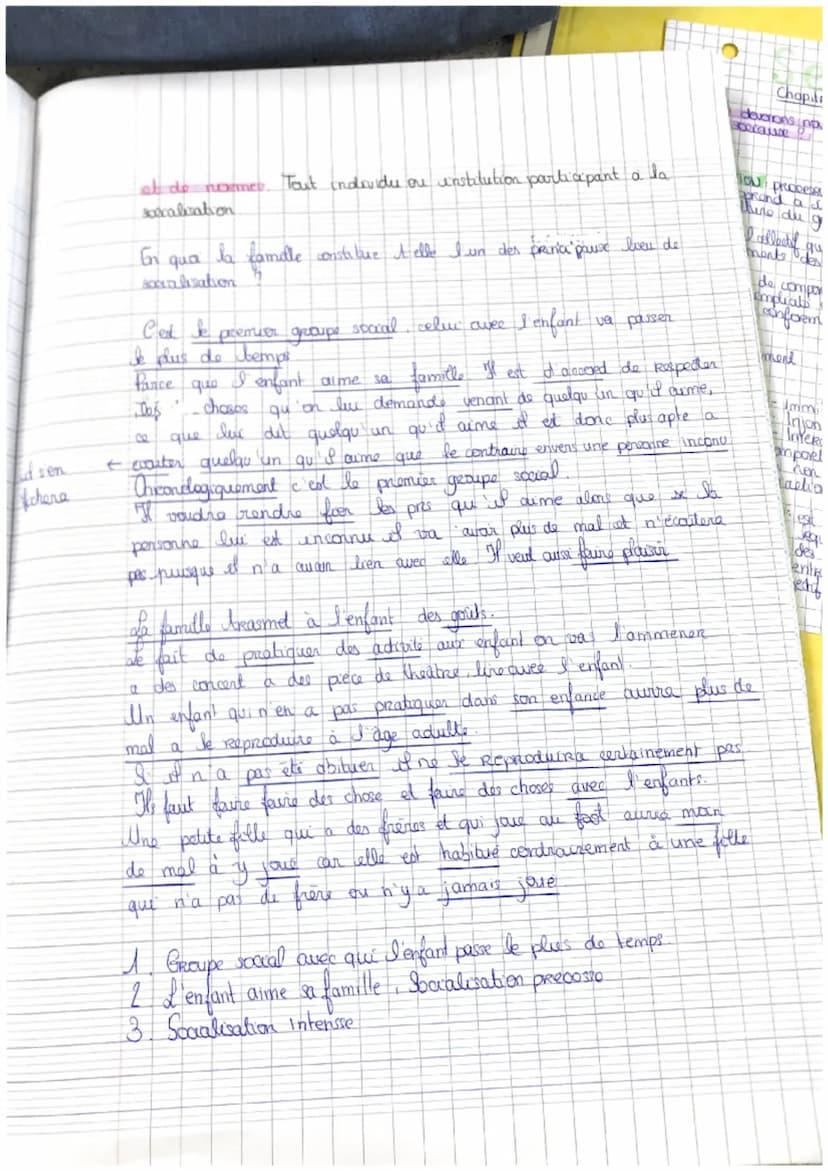 et de normes. Tout individu ou institution participant a la
socialisation
En quoi la famille constitue t elle l'un des principaux lieu de
socialisation ?
C'est le premier groupe social, celui avec l'enfant va passer
le plus de temps
Parce que l'enfant aime sa famille. Il est d'accord de respecter
Des choses qu'on lui demande venant de quelqu'un qu'il aime,
ce que lui dit quelqu'un qu'il aime il est donc plus apte a
← ecouter quelqu'un qu'il aime que le contraire envers une personne inconu
Chronologiquement c'est le premier groupe social.
Il voudra rendre fier les prs qu'il aime alors que si la
personne lui est inconnu il va avoir plus de mal et n'écoutera
pas puisque il n'a aucun lien avec elle Il veut aussi faire plaisir
La famille trasmet à l'enfant des goûts.
Le fait de pratiquer des activité aux enfant on vas l'ammener
a des concert a des piece de théâtre, lire avec l'enfant.
Un enfant qui n'en a pas pratiquer dans son enfance aurra plus de
mal a le reproduire à l'âge adulte.
S'il n'a pas été abituer il ne le Reproduira certainement pas
Ils faut faire faire des chose et faire des choses avec l'enfants.
Une petite fille qui a des frères et qui joue au foot aurra moin
de mal à y joué car elle est habitué contrairement à une fille
qui n'a pas de frère ou n'y a jamais joué
1. Groupe social avec qui l'enfant passe le plus de temps
2 L'enfant aime sa famille, Socialisation precosse
3. Socialisation Intensse
Chapit
devenons no